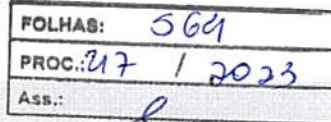 FOLHAS: 564
PROC.: 217 / 2023
Ass.: